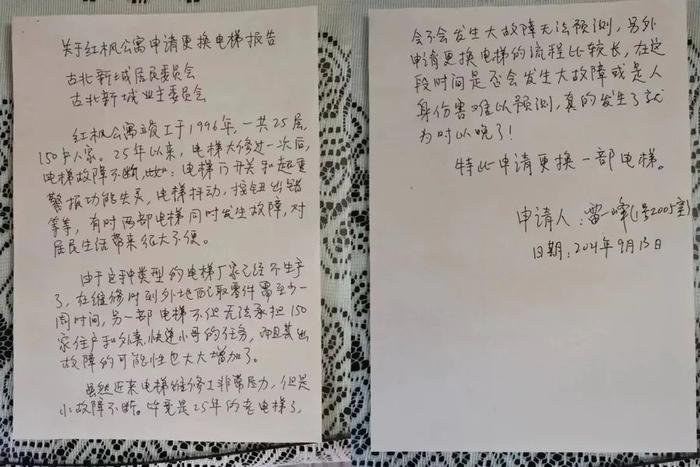 关于红枫公寓申请更换电梯报告
古北新城居民委员会
古北新城业主委员会
红枫公寓竣工于1996年,一共25层,
150户人家。25年以来,电梯大修过一次后,
电梯故障不断,比如:电梯门开关和超重
警报功能失灵,电梯抖动,按钮出错
等等,有时两部电梯同时发生故障,对
居民生活带来很大不便。
由于这种类型的电梯厂家已经不生产
了,在维修时到外地配取零件需至少一
周时间,另一部电梯不但无法承担150
家住户和外卖、快递小哥的任务,而且其出
故障的可能性也大大增加了。
虽然近来电梯维修工非常尽力,但是
小故障不断。毕竟是25年的老电梯了,
会不会发生大故障无法预测,另外
申请更换电梯的流程比较长,在这
段时间是否会发生大故障或是人
身伤害难以预测,真的发生了就
为时以晚了!
特此申请更换一部电梯。
申请人:雷一峰(1号2005室)
日期:2021年9月13日